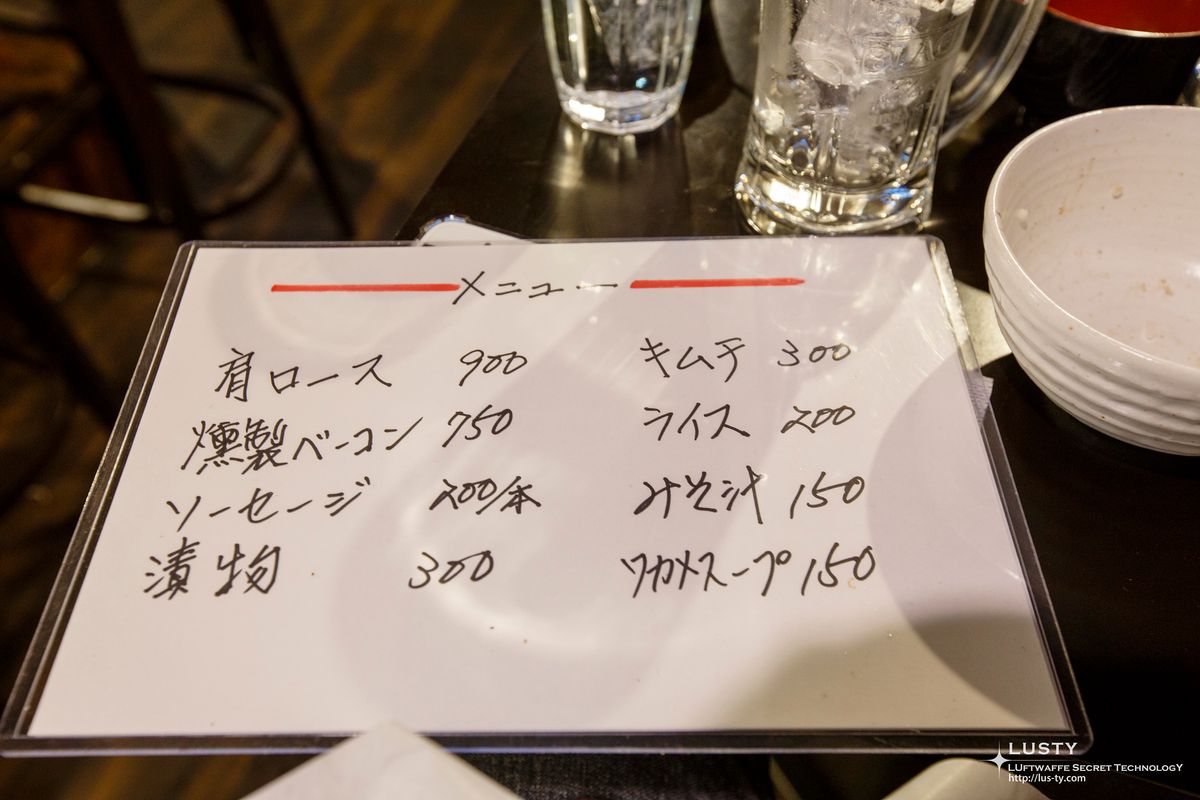 メニュー
肩ロース 900
燻製ベーコン 750
ソーセージ 200/本
漬物 300
キムチ 300
ライス 200
みそ汁 150
ワカメスープ 150
LUSTY
LUFTWAFFE SECRET TECHNOLOGY
http://lus-ty.com